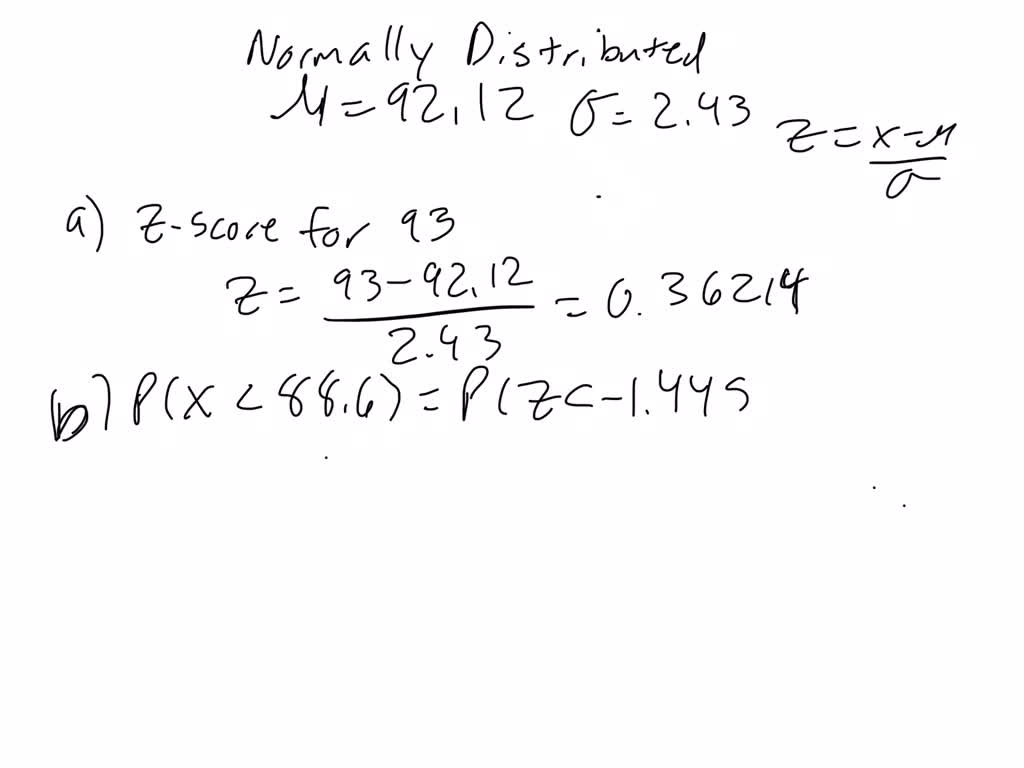 Normally Distributed
μ = 92.12 σ = 2.43 z = x-μ/σ
a) Z-score for 93
z = 93-92.12/2.43 = 0.36214
b) P(x < 88.6) = P(z < -1.445